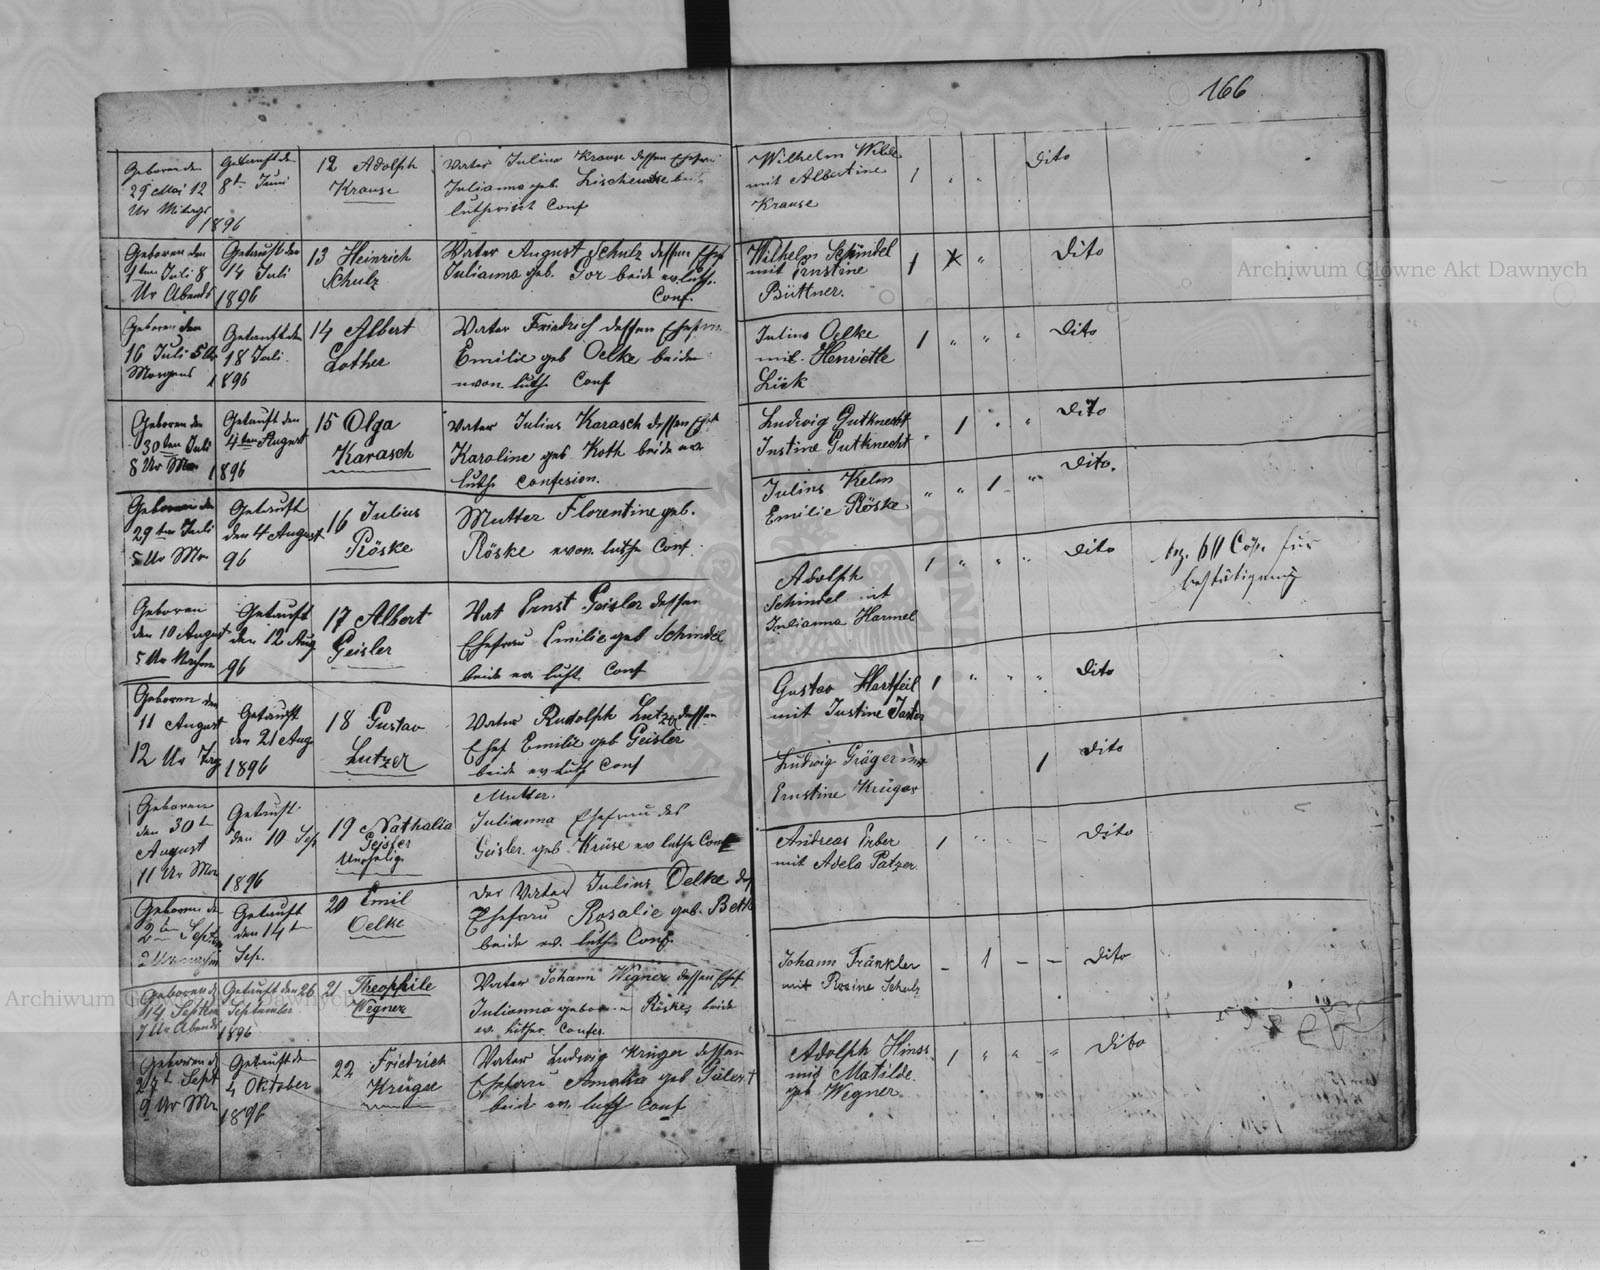 166
Geboren den
29 Mai 12
Ur Mitags
1896
Getauft den
8ten Juni
12 Adolph
Krause
Vater Julius Krause dessen Ehefrau
Julianna geb. beide
lutherisch Conf
Wilhelm Wilde
mit Albertine
Krause
1 " "
Dito
Geboren den
1ten Juli 8
Ur Abends
Getauft den
14 Juli
1896
13 Heinrich
Schulz
Vater August Schulz dessen Ehef
Julianna geb. Gor beide ev luth.
Conf.
Wilhelm Schindel
mit Ernstine
Büttner.
1 "
Dito
Geboren den
16 Juli 5 Ur
Morgens
Getauft den
18 Juli
1896
14 Albert
Lother
Vater Friedrich dessen Ehefrau
Emilie geb Oelke beiden
evon. luth Conf
Julius Oelke
mit Henriette
Lück
1 " " "
Dito
Geboren den
30ten Juli
8 Ur Mor
Getauft den
4ten August
1896
15 Olga
Karasch
Vater Julius Karasch dessen Ehef
Karoline geb Koth beide ev
luth Confesion.
Ludwig Gutknecht
Justine Gutknecht
" 1 " "
Dito
Geboren den
29ten Juli
5 Ur Mor
Getauft
den 4 August
96
16 Julius
Röske
Mutter Florentine geb.
Röske evon. luth Conf.
Julius Kelm
Emilie Röske
" " 1 "
Dito.
Geboren
den 10 August
5 Ur Nachm
Getauft
den 12 Aug
96
17 Albert
Geisler
Vat Ernst Geisler dessen
Ehefrau Emilie geb Schindel
beide ev luth. Conf
Adolph
Schindel mit
Julianna Harmel
1 " " "
Dito
60 Cop. für
bestätigung
Geboren den
11 August
12 Ur Tag
Getauft
den 21 Aug
1896
18 Gustav
Lutzer
Vater Rudolph Lutzer dessen
Ehef Emilie geb Geisler
beide ev luth Conf
Gustav Hartfeil
mit Justine
1 " " "
Dito
Geboren
den 30t
August
11 Ur Mor
Getauft
den 10 Sep
1896
19 Nathalia
Geisler
Unehelig
Mutter.
Julianna Ehefrau des
Geisler geb. Krüse ev luth Conf
Ludwig Gräger mit
Ernstine Krüger
1
Dito
Geboren den
2ten Septem
2 Ur nachm
Getauft
den 14t
Sep.
20 Emil
Oelke
Der Vater Julius Oelke des
Ehefrau Rosalie geb. Beth
beide ev. luth Conf.
Andreas Erber
mit Adela Patzer
1 " - -
Dito
Geboren d
14 Septem
7 Ur Abends
Getauft den 26
September
1896
21 Theophile
Wegner
Vater Johann Wegner dessen Ehef
Julianna geboren Röske, beide
ev. luther Confes.
Johann Fränkler
mit Rosine Schulz
- 1 - -
Dito
Geboren d
27t Sept
9 Ur Mor
Getauft den
4 Oktober
1896
22 Friedrich
Krüger
Vater Ludwig Krüger dessen
Ehefrau Amalia geb
beide ev. luth Conf
Adolph Hinss
mit Matilde
geb Wegner.
1 " " "
Dito
Archiwum Główne Akt Dawnych
Archiwum Główne Akt Dawnych